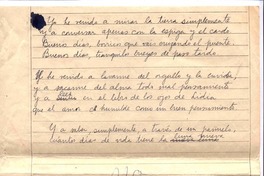 Yo he venido a mirar la tierra simplemente
y a conversar apenas con la espiga y el cardo
Buenos días, borrico que vas cruzando el puente
Buenos días, triángulo bueyes de paso tardo
Yo he venido a lavarme del orgullo y la envidia,
y a sacarme del alma todo mal pensamiento
y a leer en el libro de los ojos de
que el amor es humilde como un buen pensamiento.
Y a saber, simplemente, a través de un pañuelo,
cuántos días de vida tiene la luna nueva